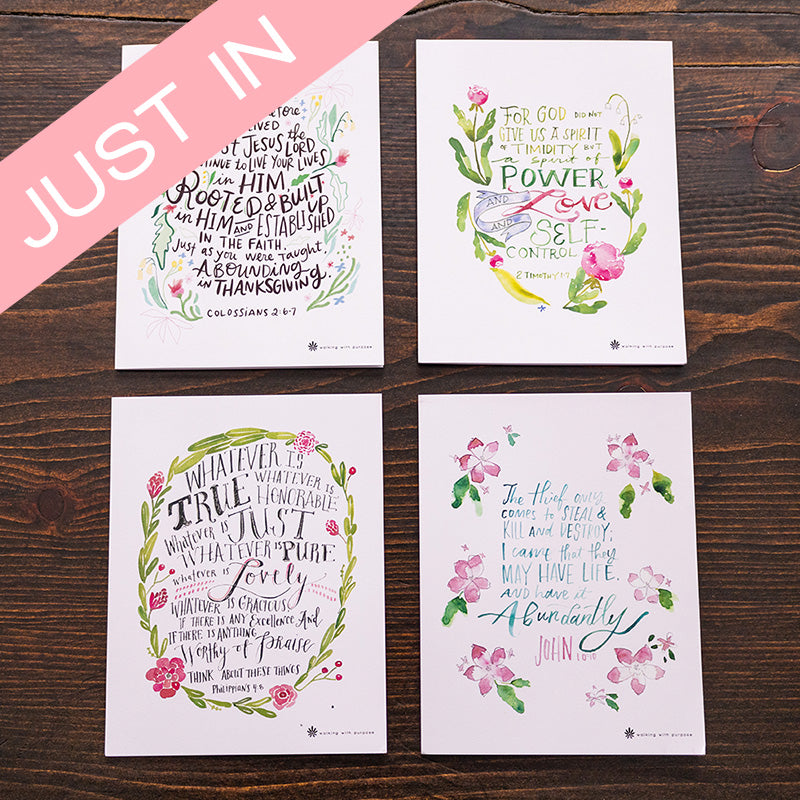 JUST IN
LIVED
JESUS the
LORD
TO LIVE YOUR LIVES
in HIM
ROOTED & BUILT
UP
in HIM AND ESTABLISHED
IN THE FAITH.
Just as you were taught
ABOUNDING
IN THANKSGIVING.
COLOSSIANS 2:6-7
walking with purpose
FOR GOD DID NOT
GIVE US A SPIRIT
OF TIMIDITY BUT
a spirit of
POWER
AND Love
AND SELF-
CONTROL
2 TIMOTHY 1:7
walking with purpose
WHATEVER IS
TRUE WHATEVER IS
HONORABLE
Whatever is JUST
WHATEVER IS PURE
whatever is Lovely
WHATEVER IS GRACIOUS
IF THERE IS ANY Excellence And
IF THERE IS ANYTHING
Worthy of Praise
THINK ABOUT THESE THINGS
PHILIPPIANS 4:8
walking with purpose
The thief only
comes to STEAL &
KILL AND DESTROY;
I came that they
MAY HAVE LIFE.
AND have it
Abundantly
JOHN 10:10
walking with purpose